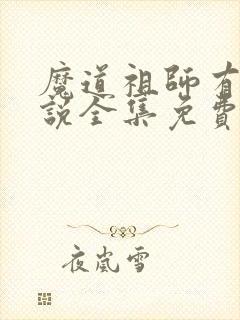 魔道祖師有
說全集免費
夜嵐雪